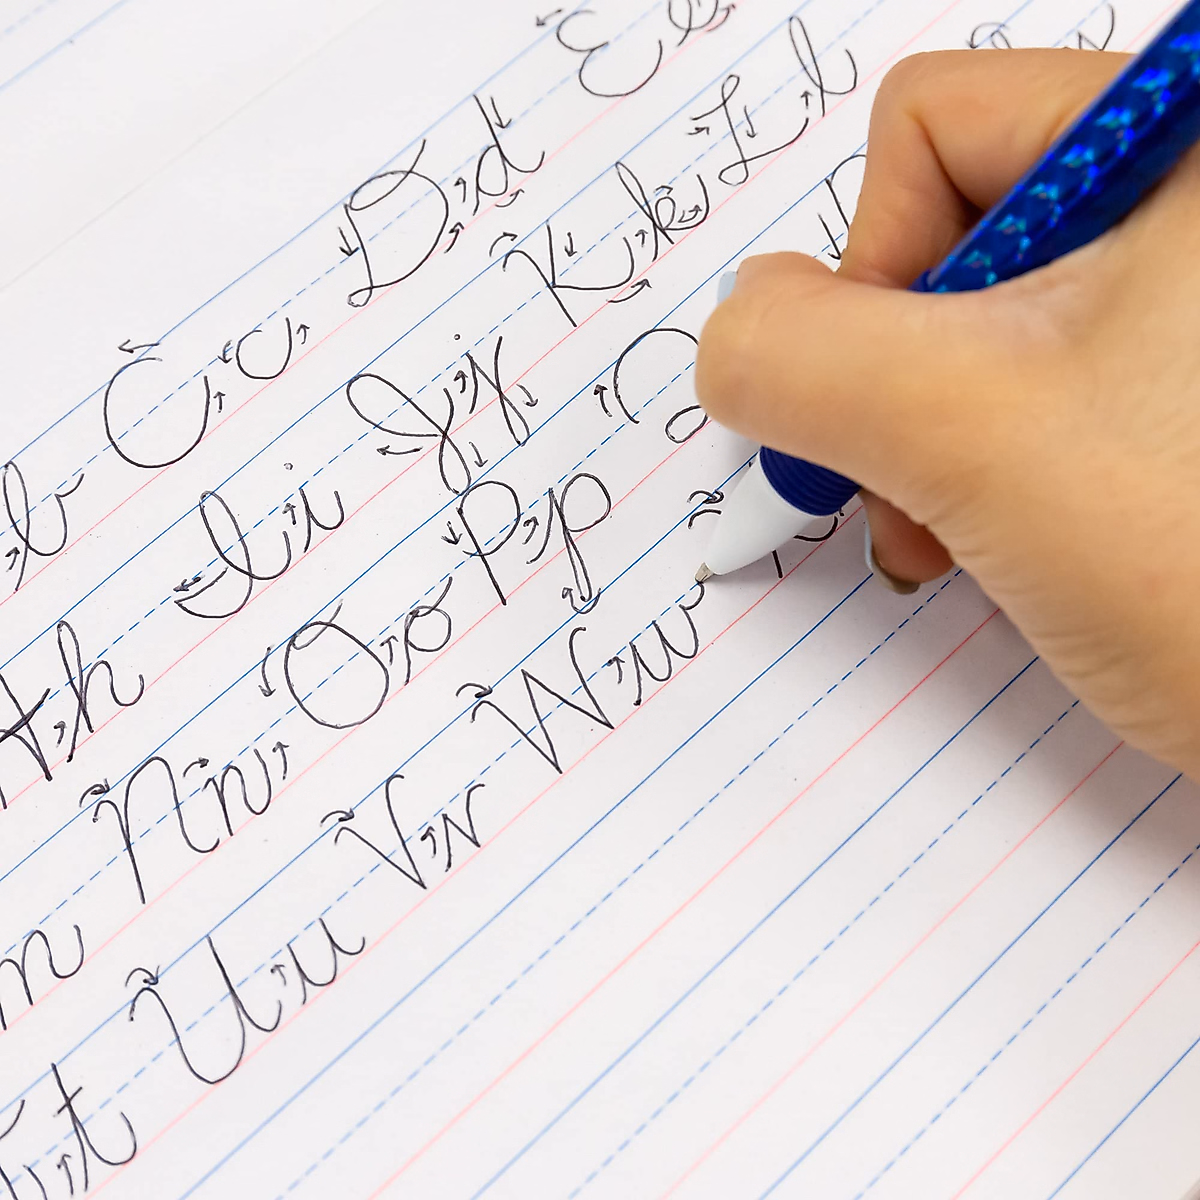 b Cc Dd Ee
h Ii Jj Kk Ll
m Nn Oo Pp
t Uu Vv Ww